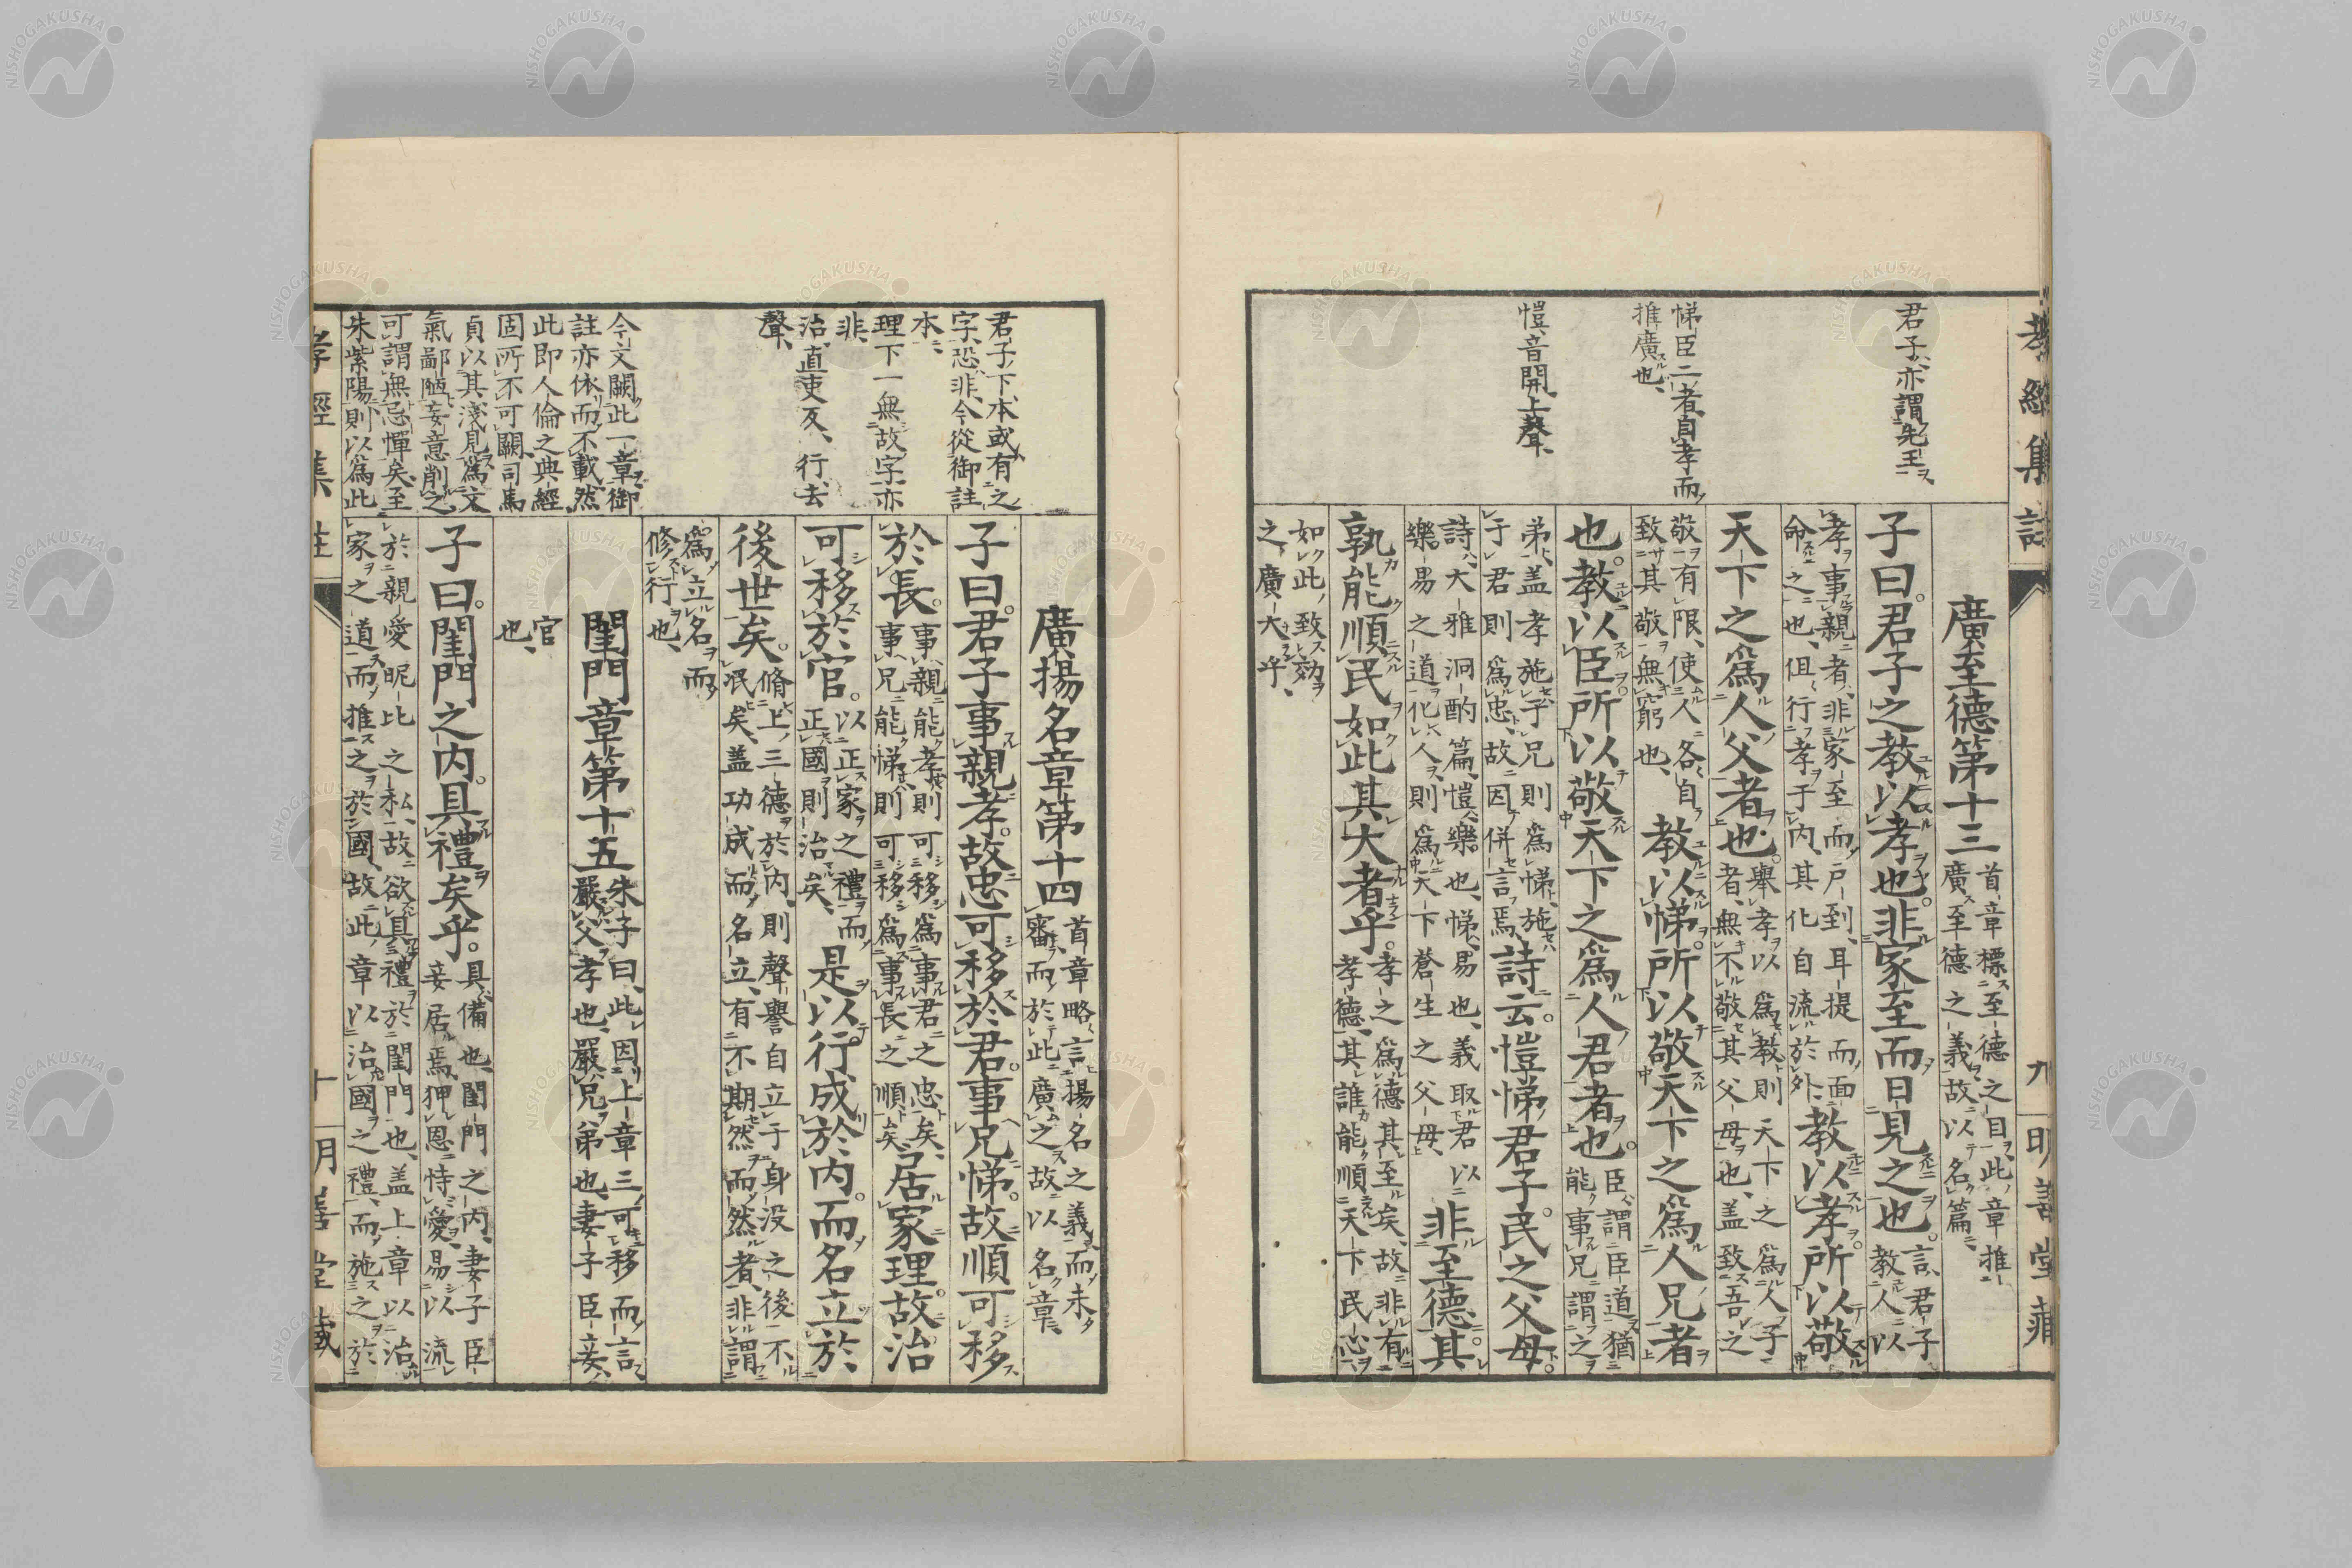 孝經集註
九
明善堂藏
君子亦謂先王
悌臣二者自孝而
推廣也
愷音開上聲
廣至德第十三
首章標至德之目此章推
廣至德之義故以名篇
子曰君子之教以孝也非家至而日見之也
言君子
教人以
孝事親者非家至而戶到耳提而面
命之也但行孝于內其化自流於外
教以孝所以敬
天下之爲人父者也
舉孝以爲教則天下之爲人子
者無不敬其父母也盖致吾之
敬有限使人各自
致其敬無窮也
教以悌所以敬天下之爲人兄者
也教以臣所以敬天下之爲人君者也
臣謂臣道猶
能事兄謂之
弟盖孝施子兄則爲悌施
于君則爲忠故因併言焉
詩云愷悌君子民之父母
詩大雅泂酌篇愷樂也悌易也義取君以
樂易之道化人則爲天下蒼生之父母
非至德其
孰能順民如此其大者乎
孝之爲德其至矣故非有
孝德其誰能順天下民心
如此致効
之廣大乎
君子下本或有之
字恐非今從御註
本
理下一無故字亦
非
治直吏反行去
聲
今文闕此一章御
註亦依而不載然
此即人倫之典經
固所不可闕司馬
貞以其淺見爲文
氣鄙陋妄意削之
可謂無忌憚矣至
朱紫陽則以爲此
廣揚名章第十四
首章略言揚名之義而未
審而於此廣之故以名章
子曰君子事親孝故忠可移於君事兄悌故順可移
於長
事親能孝則可移爲事君之忠矣
事兄能悌則可移爲事長之順矣
居家理故治
可移於官
以正家之禮而
正國則治矣
是以行成於內而名立於
後世矣
脩上三德於內則聲譽自立于身没之後不
泯矣盖功成而名立有不期然而然者非謂
爲立名而
修行也
閨門章第十五
朱子曰此因上章三可移而言
嚴父孝也嚴兄弟也妻子臣妾
官
也
子曰閨門之內具禮矣乎
具備也閨門之內妻子臣
妾居焉狎恩恃愛易以流
於親愛昵比之私故欲具禮於閨門也盖上章以治
家之道而推之於國故此章以治國之禮而施之於
孝經集註
十
明善堂藏